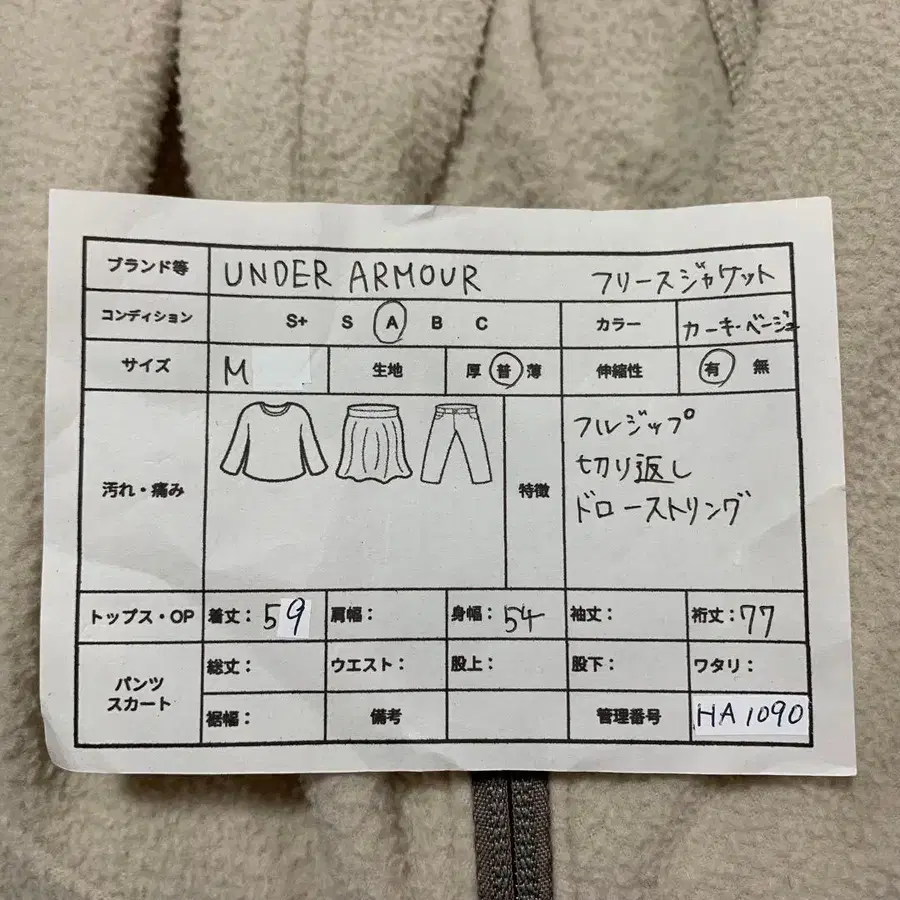 ブランド等 UNDER ARMOUR フリースジャケット
コンディション S+ S A B C カラー カーキ・ベージュ
サイズ M 生地 厚 普 薄 伸縮性 有 無
汚れ・痛み 特徴 フルジップ
切り返し
ドローストリング
トップス・OP 着丈：59 肩幅： 身幅：54 袖丈： 裄丈：77
パンツ
スカート
総丈： ウエスト： 股上： 股下： ワタリ：
裾幅： 備考 管理番号 HA1090